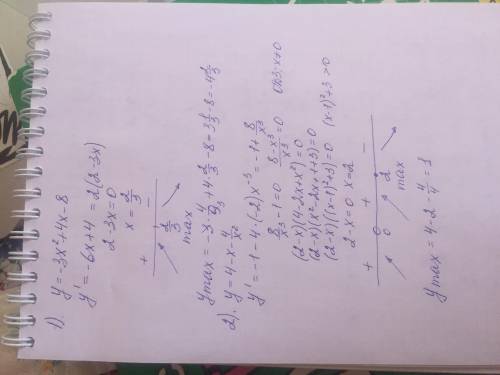 1). y = -3x²+4x-8
y' = -6x+4 = 2(2-3x)
2-3x=0
x = 2/3
+ −
2/3
max
y max = -3·4/9+4·2/3-8=
2). y = 4-x-4/x²
y' = -1-4·(-2)x⁻³ = -1+8/x³
8/x³-1=0 8-x³/x³=0 x≠0
(2-x)(4-2x+x²)=0
(2-x)(x²-2x+1+3)=0
(2-x)((x-1)²+3)=0 (x-1)²+3>0
2-x=0 x=2
+ + −
0 2
max
y max = 4-2-4/4=1